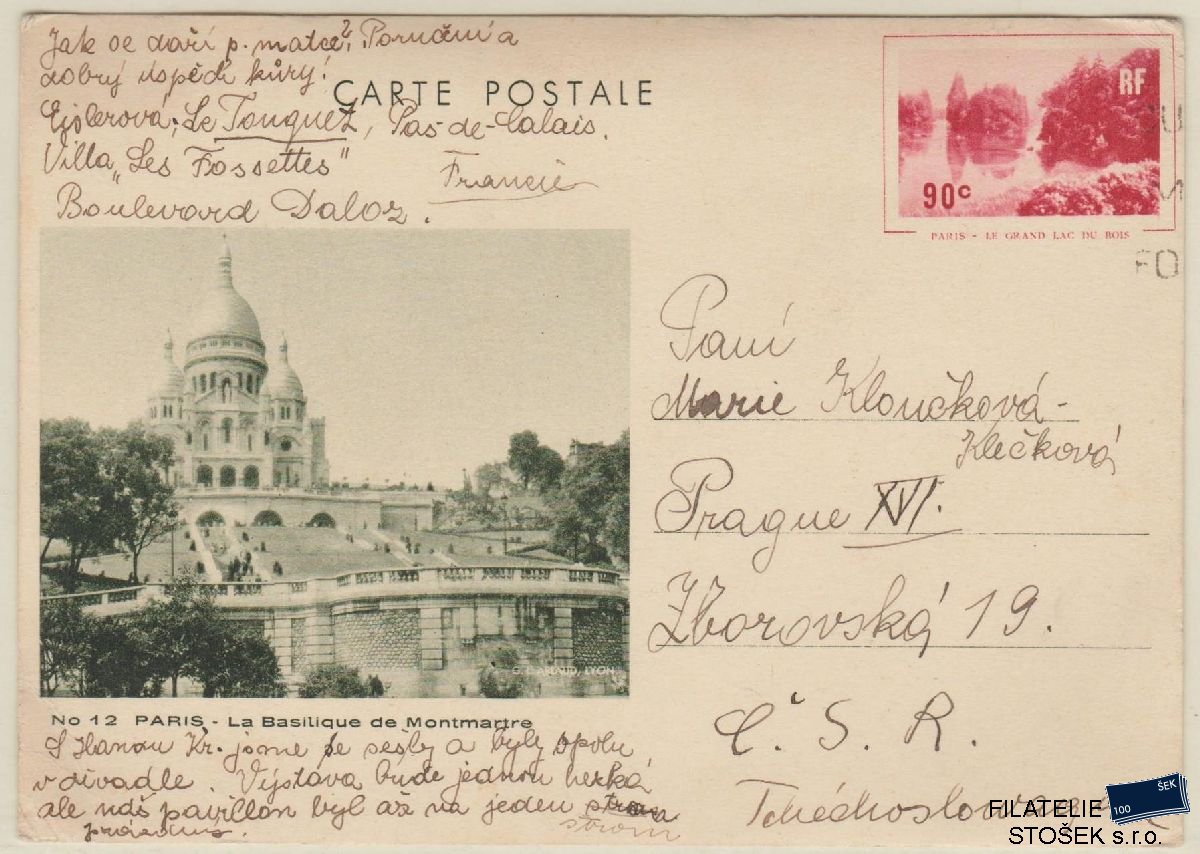 Jak se daří p. matce? Poručení a
dobrý úspěch kůry!
Ejslerová, Le Touquet, Pas-de-Calais.
Villa „Les Fossettes"
Francie
Boulevard Daloz.
CARTE POSTALE
RF
90c
PARIS - LE GRAND LAC DU BOIS
FO
Paní
Marie Kloučková-
Klečková
Prague XVI.
Zborovská 19.
Č. S. R.
Tchéchoslovaquie
C. T. ARDAUD, LYON
No 12 PARIS. - La Basilique de Montmartre
S Hanou Kr. jsme se sešly a byly spolu
v divadle. Výstava bude jednou hezká
ale náš pavillon byl až na jeden
strom
FILATELIE
STOŠEK s.r.o.
100 ŠEK